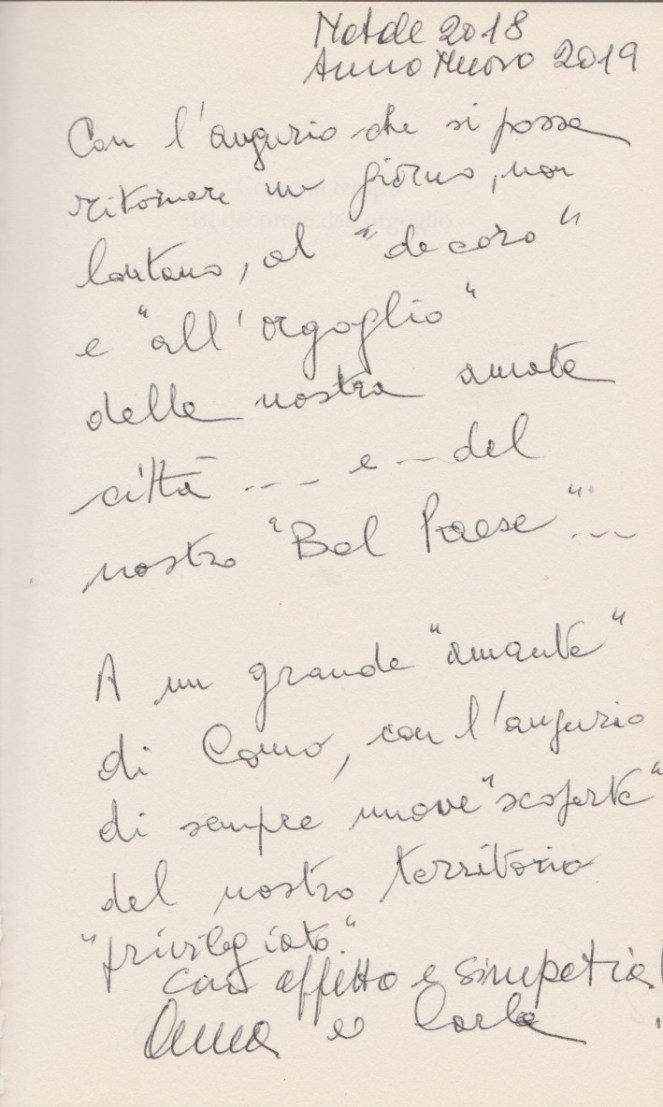 Natale 2018
Anno Nuovo 2019
Con l'augurio che si possa
ritornare un giorno, non
lontano, al "decoro"
e "all'orgoglio"
della nostra amata
città ---- e -- del
nostro "Bel Paese"...
A un grande "amante"
di Como, con l'augurio
di sempre nuove "scoperte"
del nostro territorio
"privilegiato."
con affetto e simpatia!
Anna e Carla